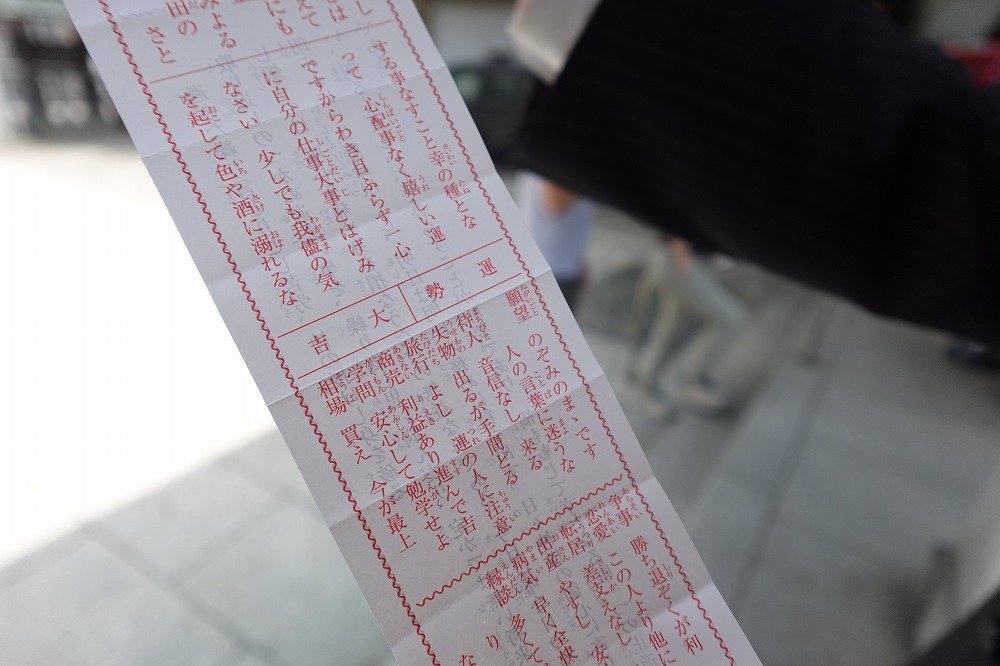 とは
えて
にも
みよる
田の
さと
する事なすこと幸の種とな
って 心配事なく嬉しい運
ですからわき目ふらず一心
に自分の仕事大事とはげみ
なさい 少しでも我儘の気
を起して色や酒に溺れるな
運勢
大吉
願望 のぞみのまゝです
人の言葉に迷うな
待人 音信なし 来る
失物 出るが手間どる
旅行 よし 連の人に注意
商売 利益あり進んで吉
学問 安心して勉学せよ
相場 買え 今が最上
争事 勝ち退ぞくが利
恋愛 この人より他に
転居 差支えなし
出産 やすし 安
病気 早く全快
縁談 多くて
り
な